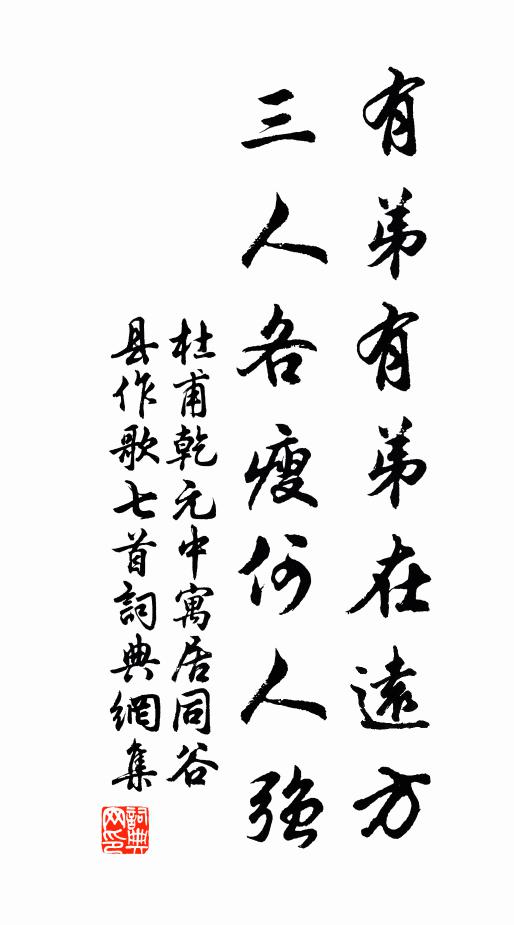 有弟有弟在遠方
三人各瘦何人強
杜甫乾元中寓居同谷
县作歌七首詞典網集
詞典
网印